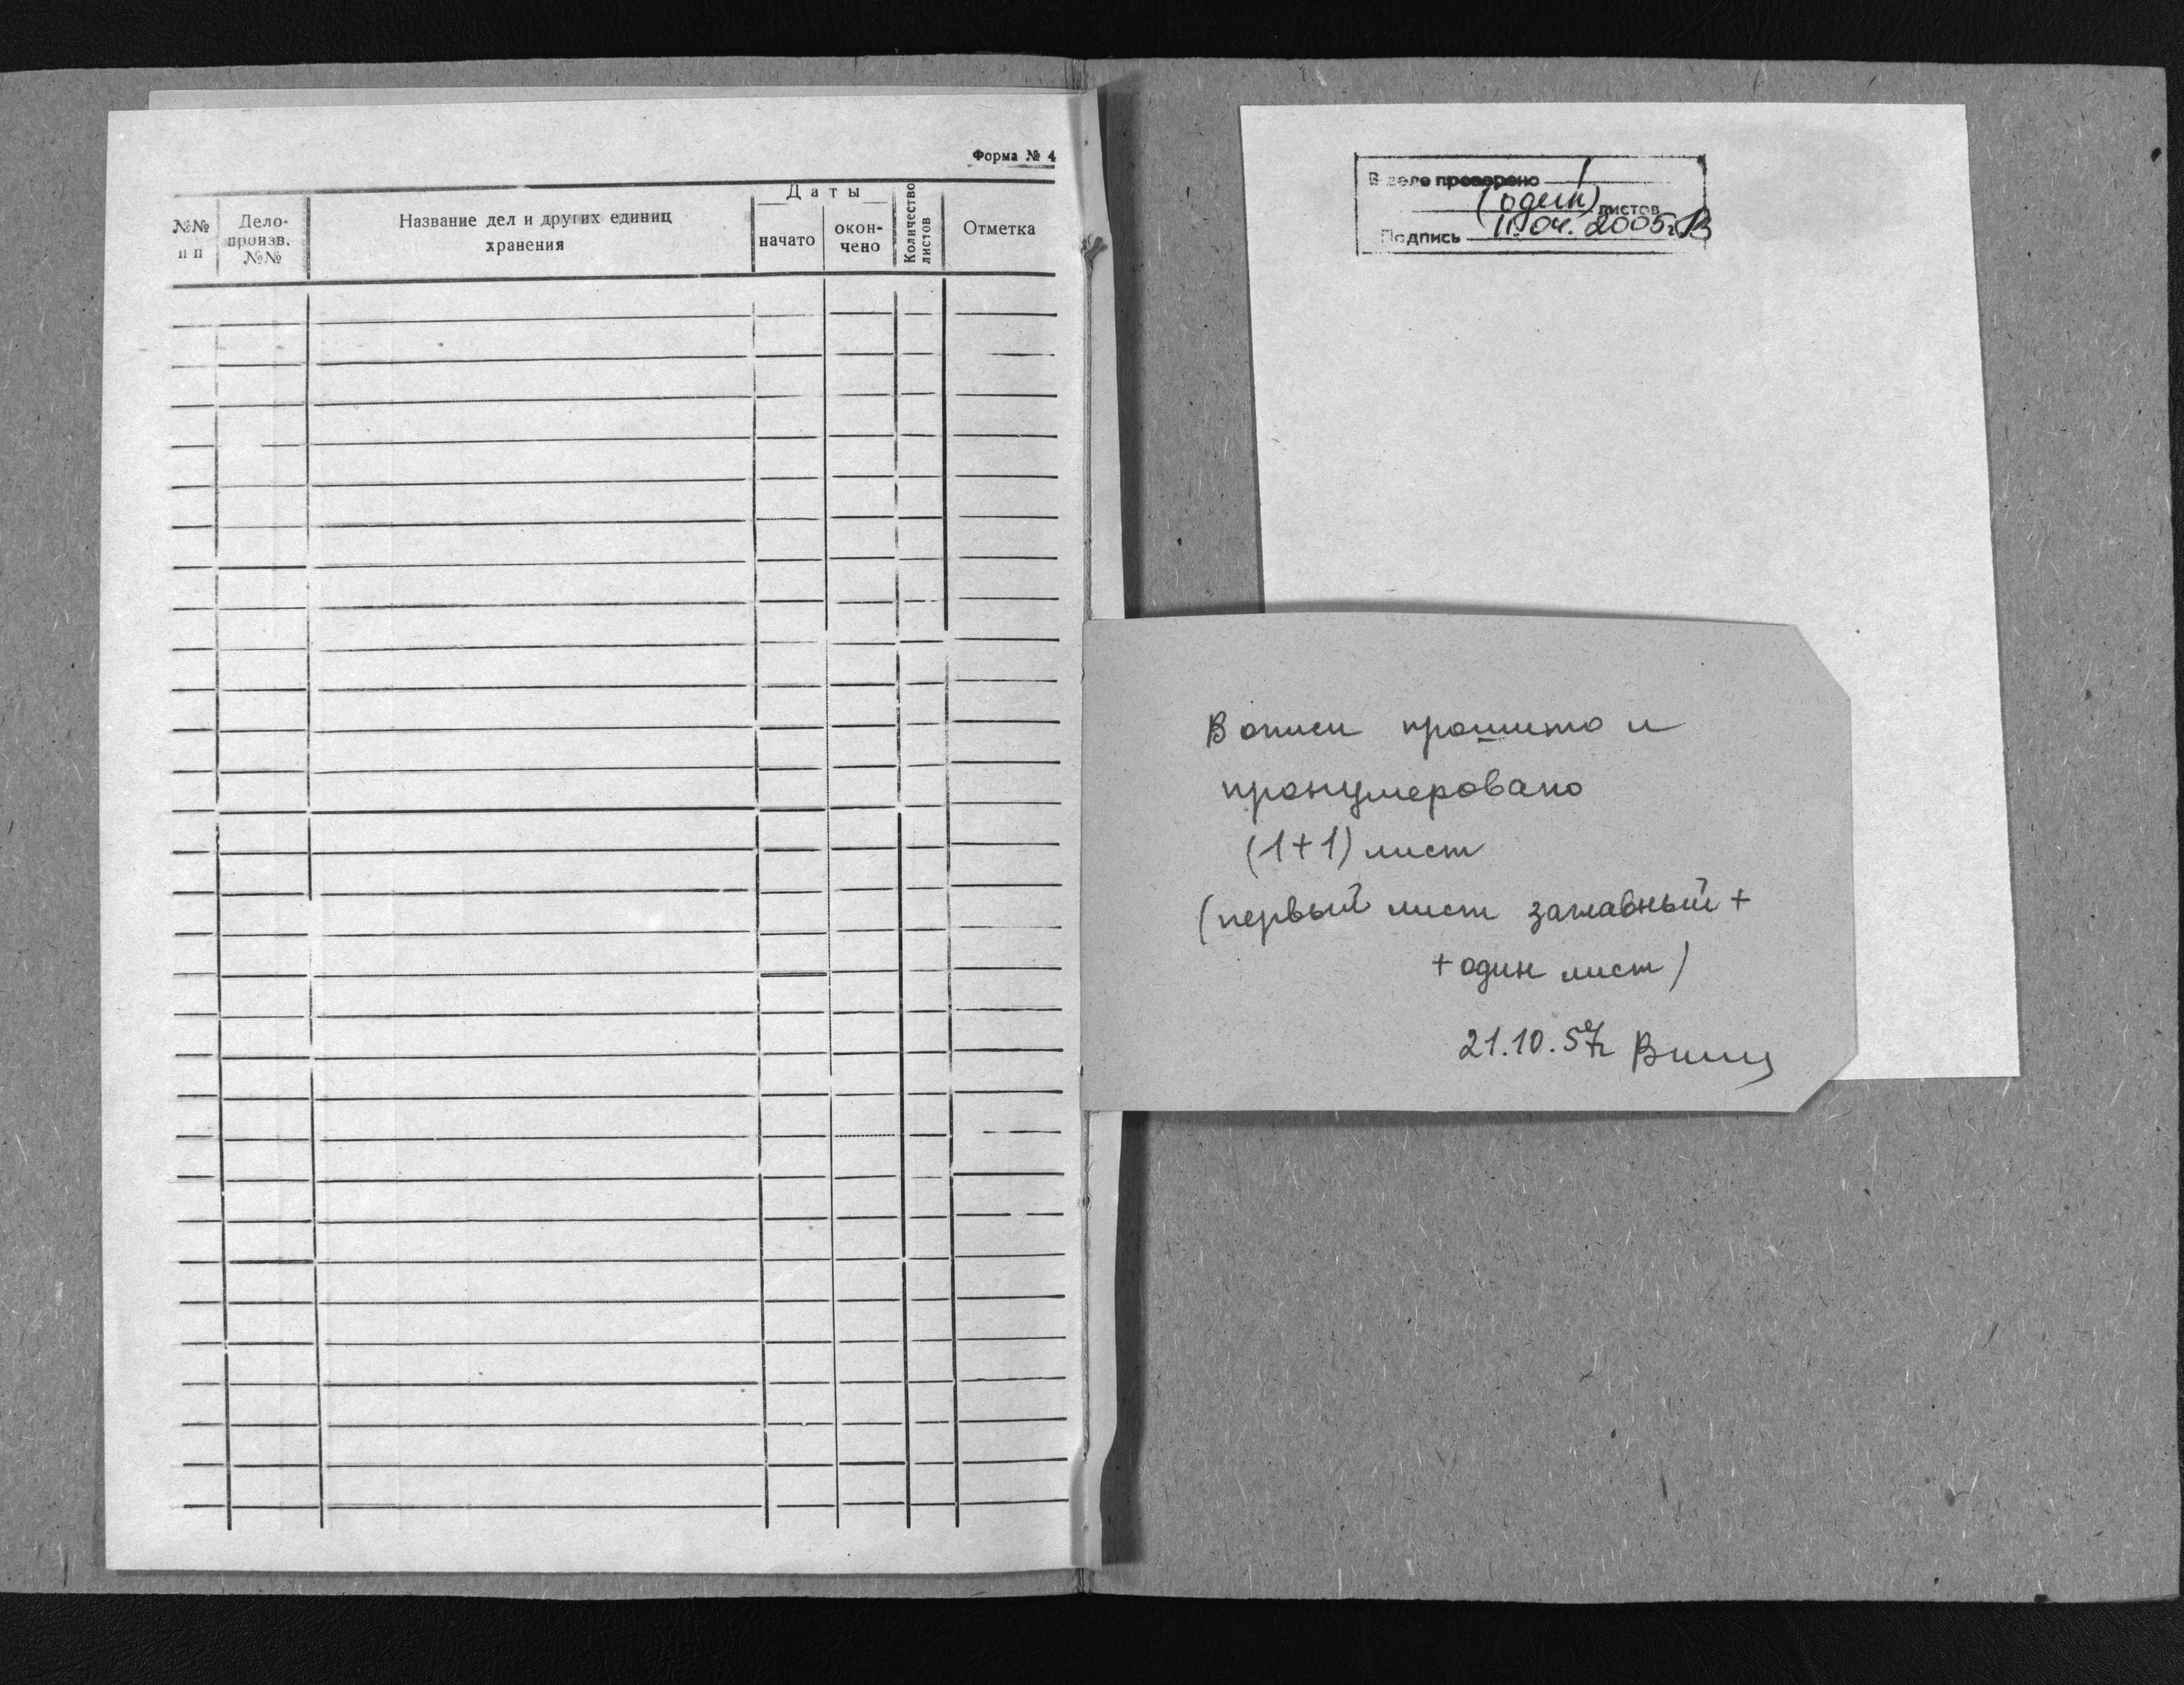 Форма № 4
№№ п п
Дело-
произв.
№№
Название дел и других единиц
хранения
Даты
начато
окон-
чено
Количество
листов
Отметка
В деле проверено 1
(один) листов
Подпись 11.04.2005г.
В описи прошито и
пронумеровано
(1+1) лист
(первый лист заглавный +
+ один лист)
21.10.57г